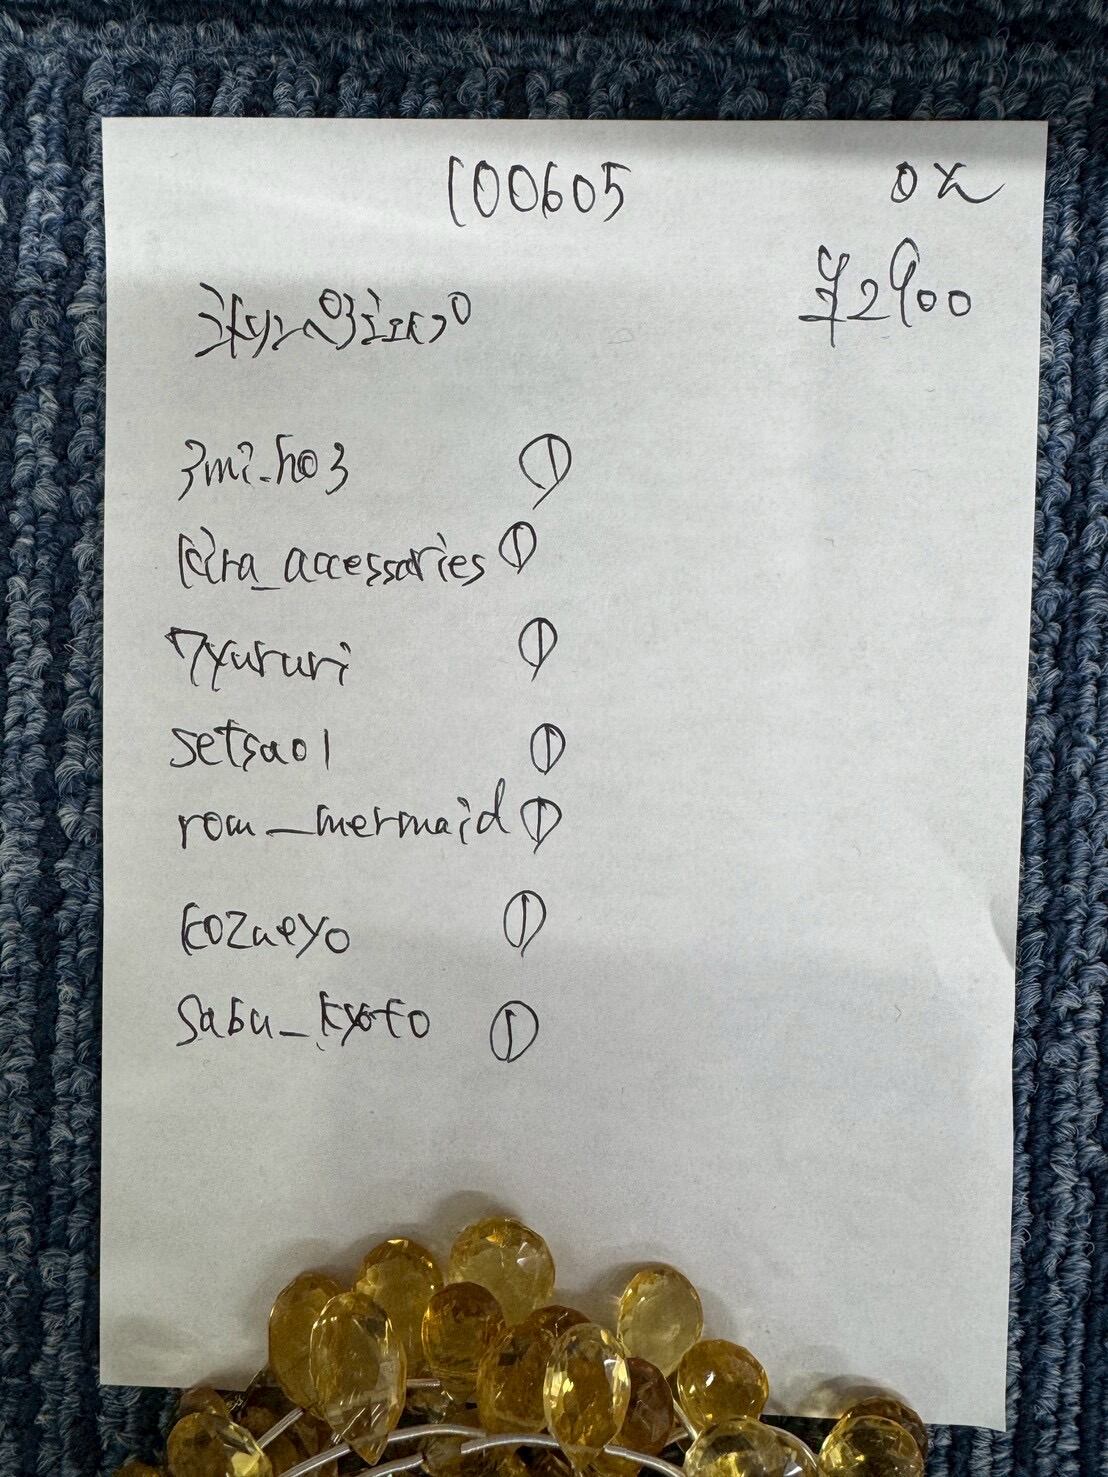 100605
¥2900
3mi_ho3 ①
kira_accessaries ①
7yururi ①
setsao1 ①
rom_mermaid ①
kozueyo ①
Sabu_kyoto ①